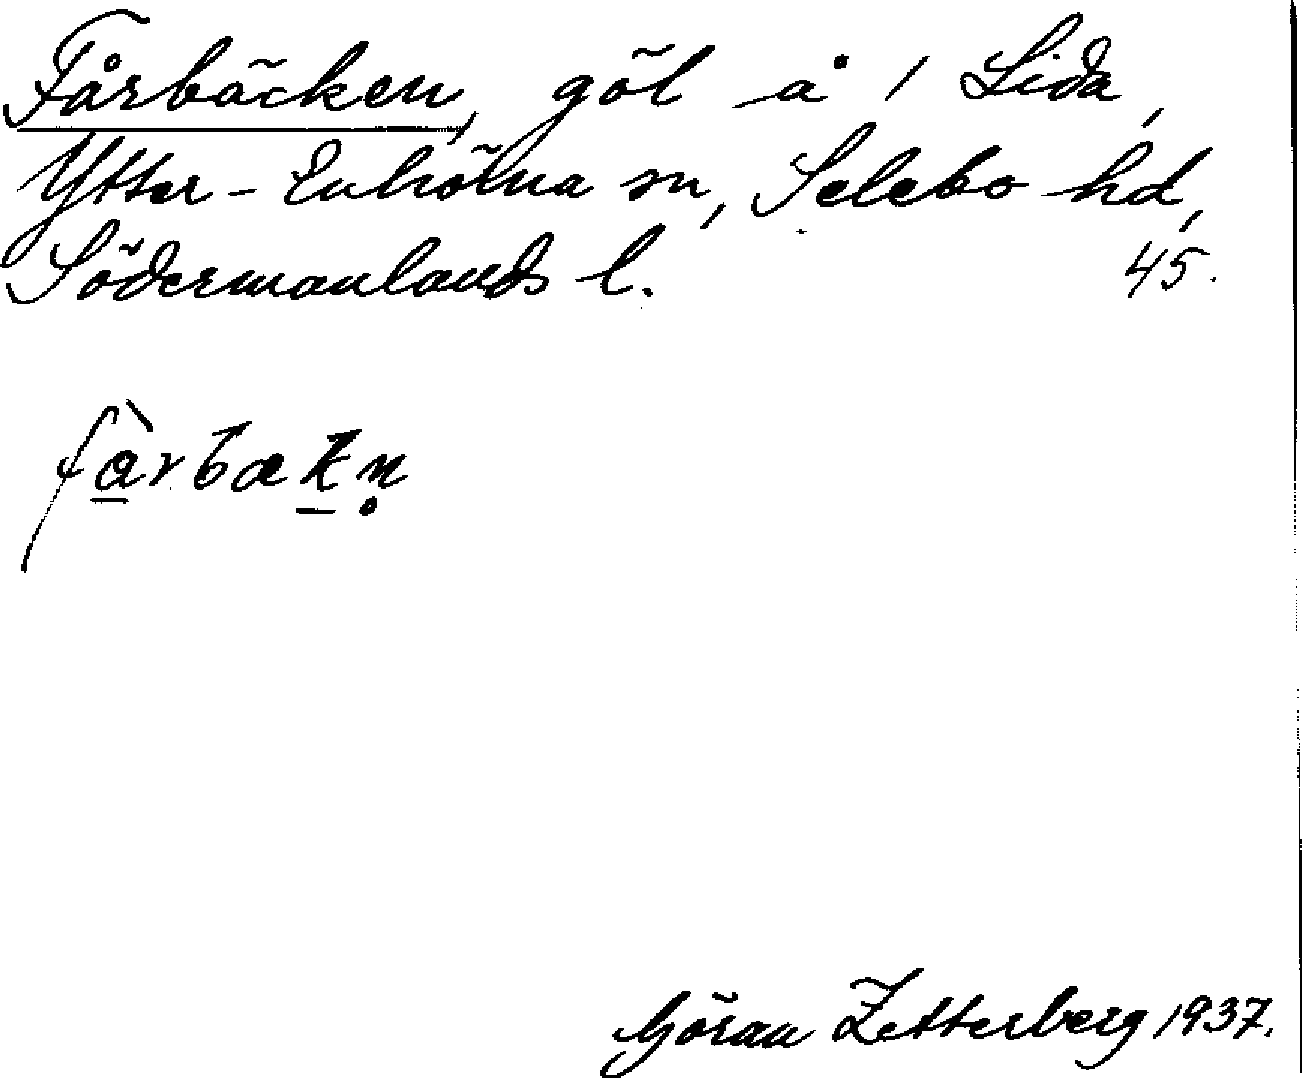 Fårbäcken, göl å 1 Lida,
Ytter-Enhörna sn, Selebo hd,
Södermanlands l. 45.
fàrbækn̥
Göran Zetterberg 1937.